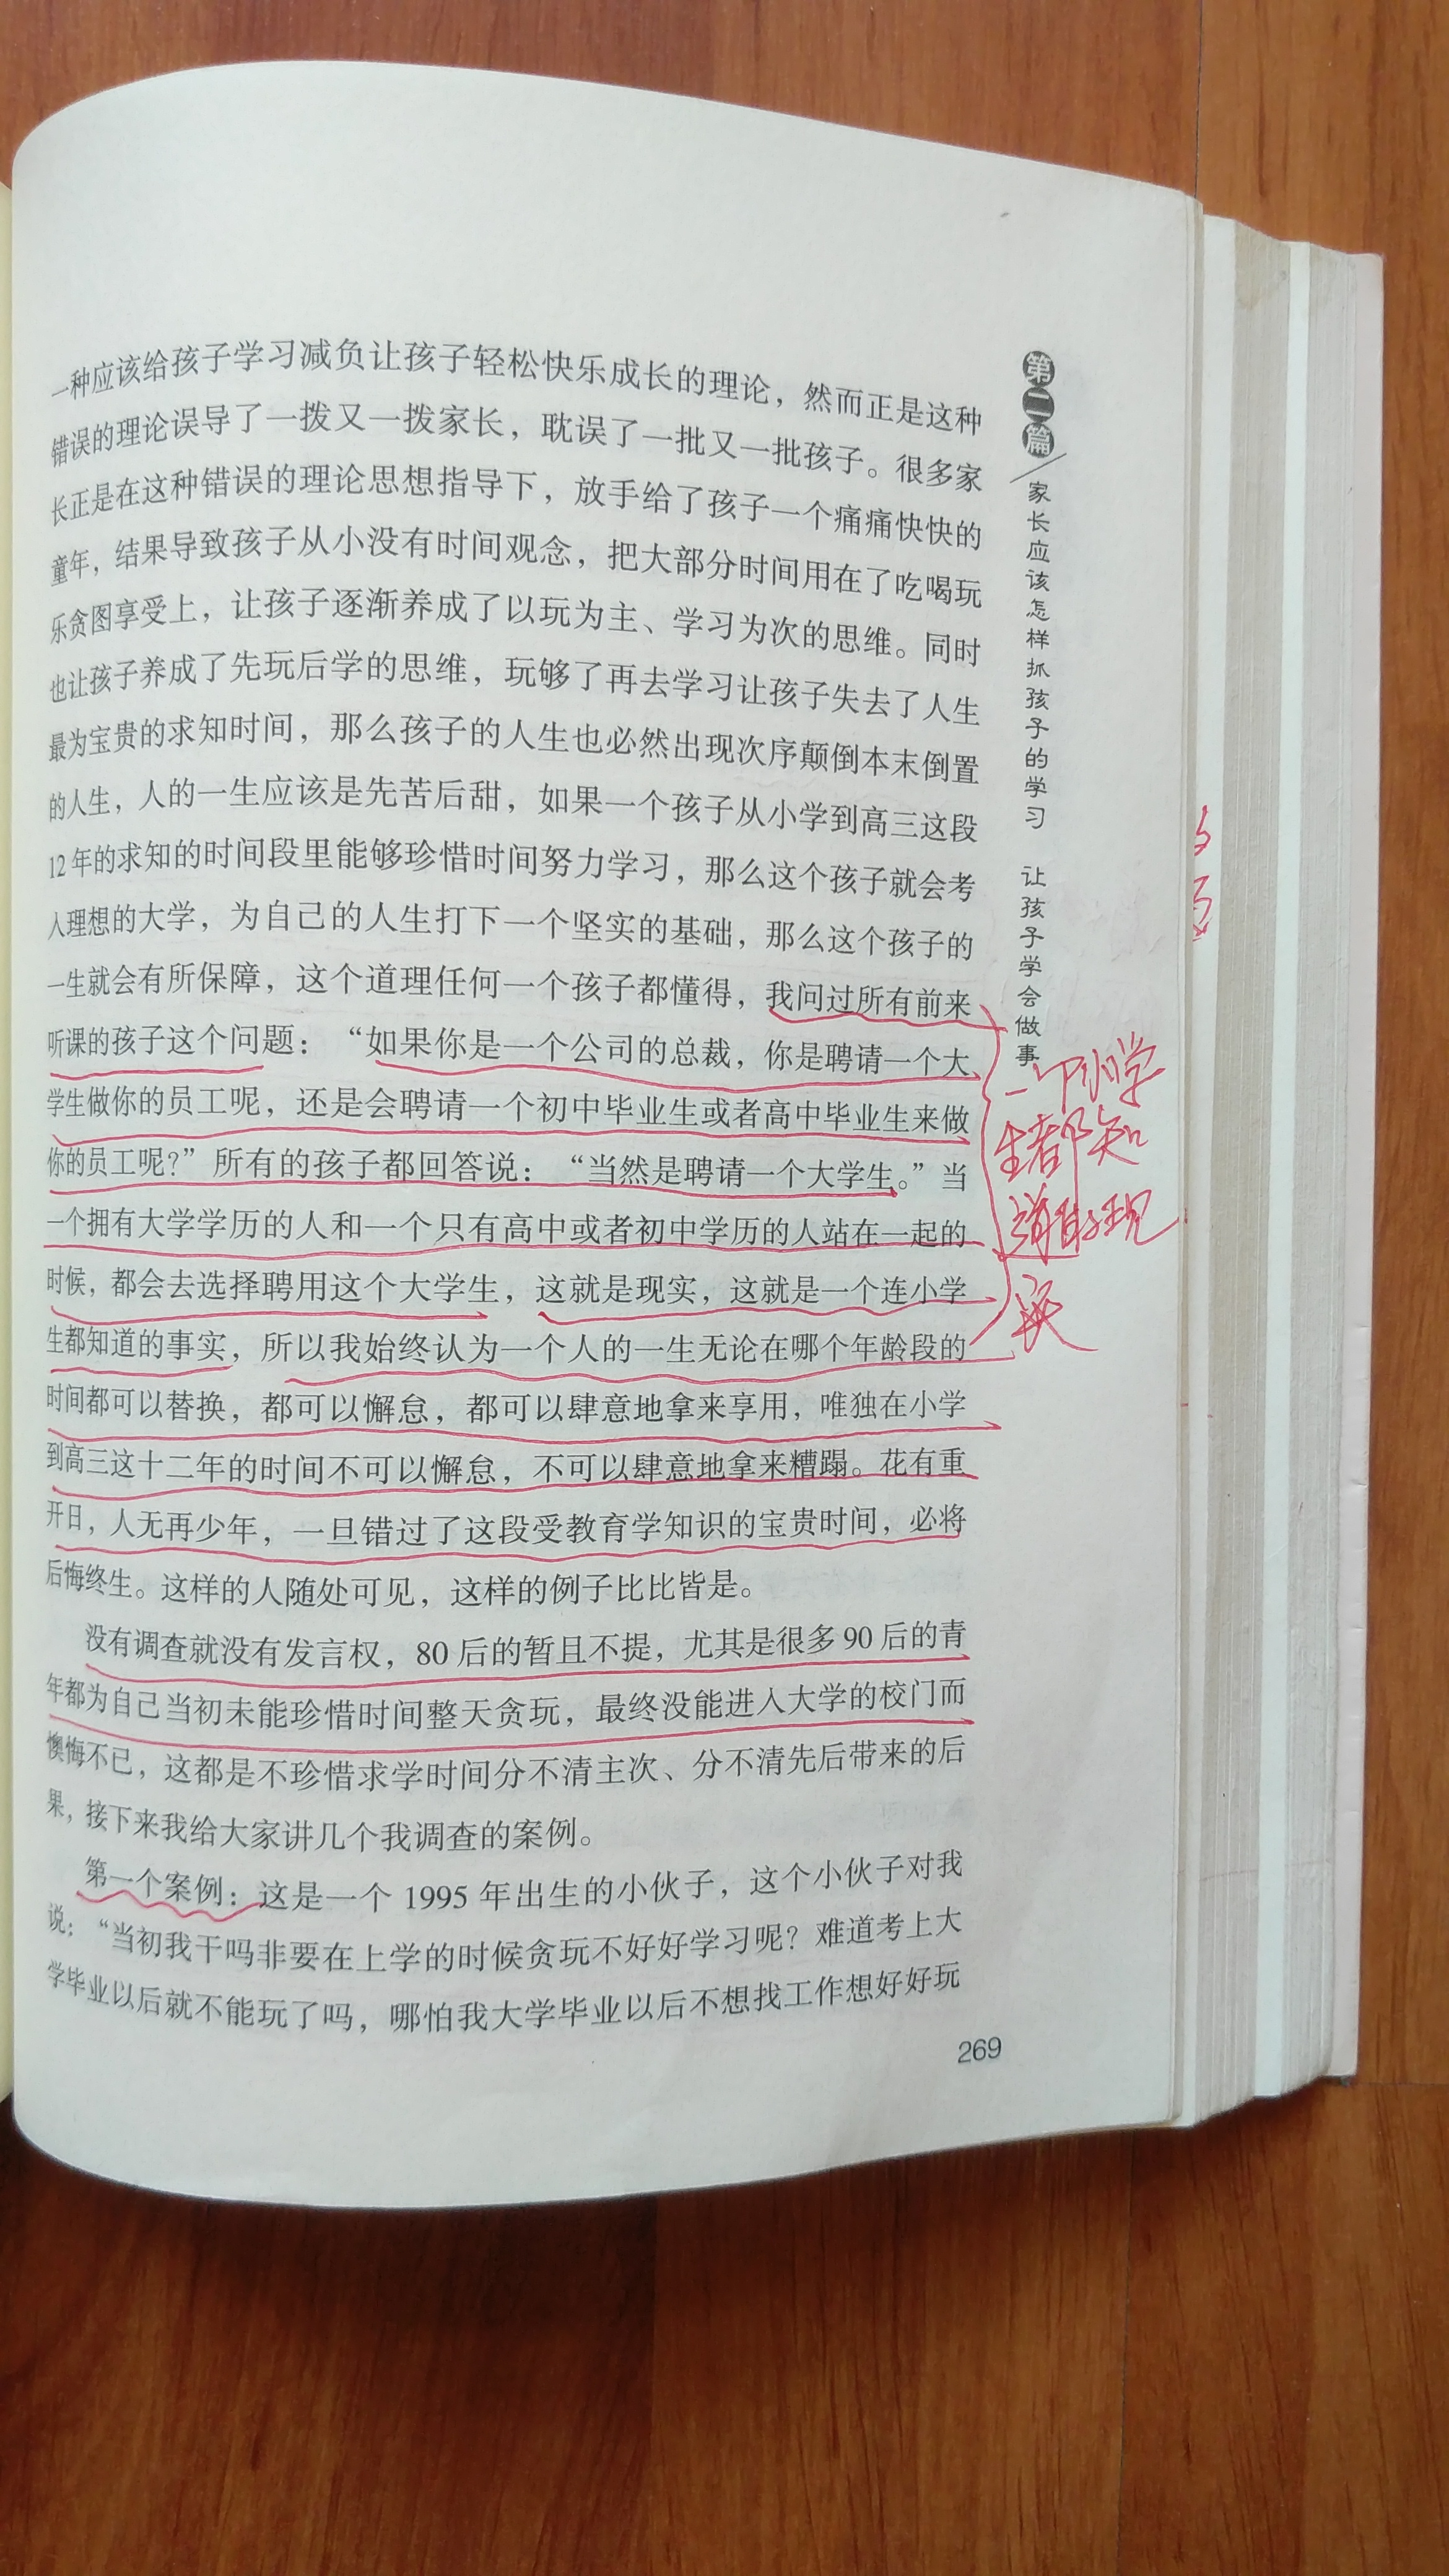 一种应该给孩子学习减负让孩子轻松快乐成长的理论，然而正是这种
错误的理论误导了一拨又一拨家长，耽误了一批又一批孩子。很多家
长正是在这种错误的理论思想指导下，放手给了孩子一个痛痛快快的
童年，结果导致孩子从小没有时间观念，把大部分时间用在了吃喝玩
乐贪图享受上，让孩子逐渐养成了以玩为主、学习为次的思维。同时
也让孩子养成了先玩后学的思维，玩够了再去学习让孩子失去了人生
最为宝贵的求知时间，那么孩子的人生也必然出现次序颠倒本末倒置
的人生，人的一生应该是先苦后甜，如果一个孩子从小学到高三这段
12年的求知的时间段里能够珍惜时间努力学习，那么这个孩子就会考
入理想的大学，为自己的人生打下一个坚实的基础，那么这个孩子的
一生就会有所保障，这个道理任何一个孩子都懂得，我问过所有前来
听课的孩子这个问题：“如果你是一个公司的总裁，你是聘请一个大
学生做你的员工呢，还是会聘请一个初中毕业生或者高中毕业生来做
你的员工呢？”所有的孩子都回答说：“当然是聘请一个大学生。”当
一个拥有大学学历的人和一个只有高中或者初中学历的人站在一起的
时候，都会去选择聘用这个大学生，这就是现实，这就是一个连小学
生都知道的事实，所以我始终认为一个人的一生无论在哪个年龄段的
时间都可以替换，都可以懈怠，都可以肆意地拿来享用，唯独在小学
到高三这十二年的时间不可以懈怠，不可以肆意地拿来糟蹋。花有重
开日，人无再少年，一旦错过了这段受教育学知识的宝贵时间，必将
后悔终生。这样的人随处可见，这样的例子比比皆是。
没有调查就没有发言权，80后的暂且不提，尤其是很多90后的青
年都为自己当初未能珍惜时间整天贪玩，最终没能进入大学的校门而
懊悔不已，这都是不珍惜求学时间分不清主次、分不清先后带来的后
果，接下来我给大家讲几个我调查的案例。
第一个案例：这是一个1995年出生的小伙子，这个小伙子对我
说：“当初我干吗非要在上学的时候贪玩不好好学习呢？难道考上大
学毕业以后就不能玩了吗，哪怕我大学毕业以后不想找工作想好好玩
269
第二篇
家长应该怎样抓孩子的学习 让孩子学会做事
一个小学
生都知
道的现
实